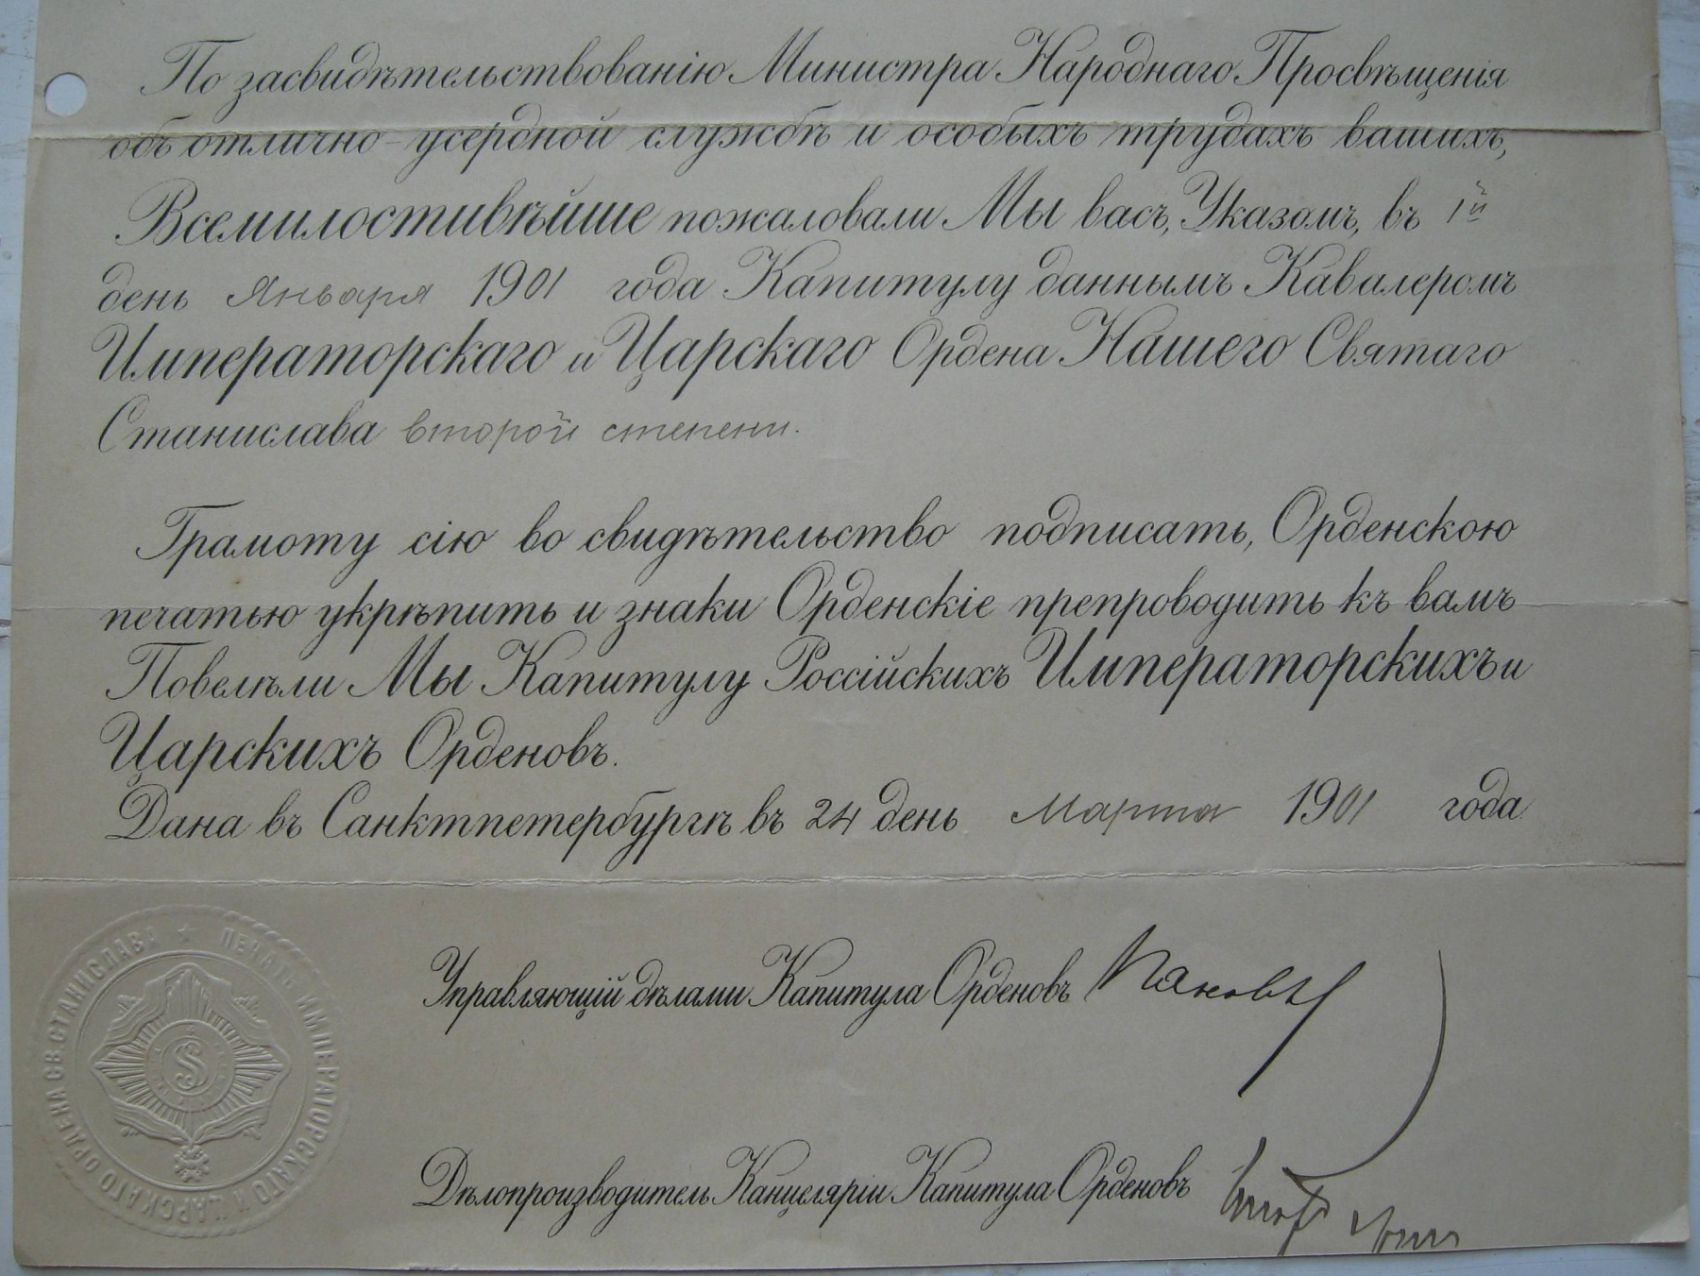 По засвидѣтельствованію Министра Народнаго Просвѣщенія
объ отлично-усердной службѣ и особыхъ трудахъ вашихъ,
Всемилостивѣйше пожаловали Мы васъ, Указомъ, въ 1й
день Января 1901 года Капитулу даннымъ Кавалеромъ
Императорскаго и Царскаго Ордена Нашего Святаго
Станислава второй степени.
Грамоту сію во свидѣтельство подписать, Орденскою
печатью укрѣпить и знаки Орденскіе препроводить къ вамъ
Повелѣли Мы Капитулу Россійскихъ Императорскихъ и
Царскихъ Орденовъ.
Дана въ Санктпетербургѣ въ 24 день Марта 1901 года.
Управляющій дѣлами Капитула Орденовъ
Дѣлопроизводитель Канцеляріи Капитула Орденовъ
ПЕЧАТЬ ИМПЕРАТОРСКАГО И ЦАРСКАГО ОРДЕНА СВ. СТАНИСЛАВА
SS